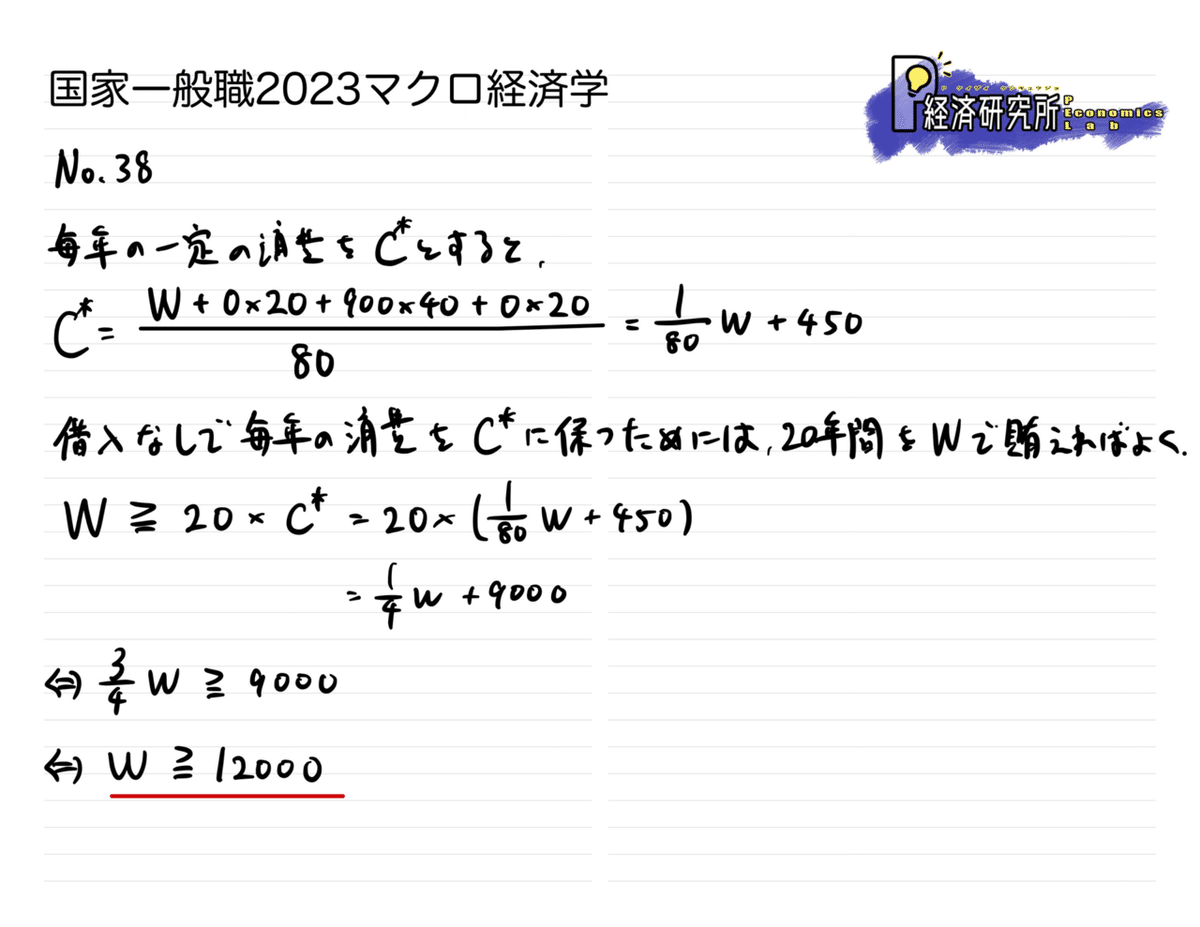 国家一般職2023マクロ経済学
P経済研究所
P Economics Lab
No.38
毎年の一定の消費をC*とすると,
C* = (W + 0×20 + 900×40 + 0×20)/80 = 1/80 W + 450
借入なしで毎年の消費をC*に保つためには,20年間をWで賄えればよく.
W ≧ 20 × C* = 20×(1/80 W + 450)
= 1/4 W + 9000
⇔ 3/4 W ≧ 9000
⇔ W ≧ 12000